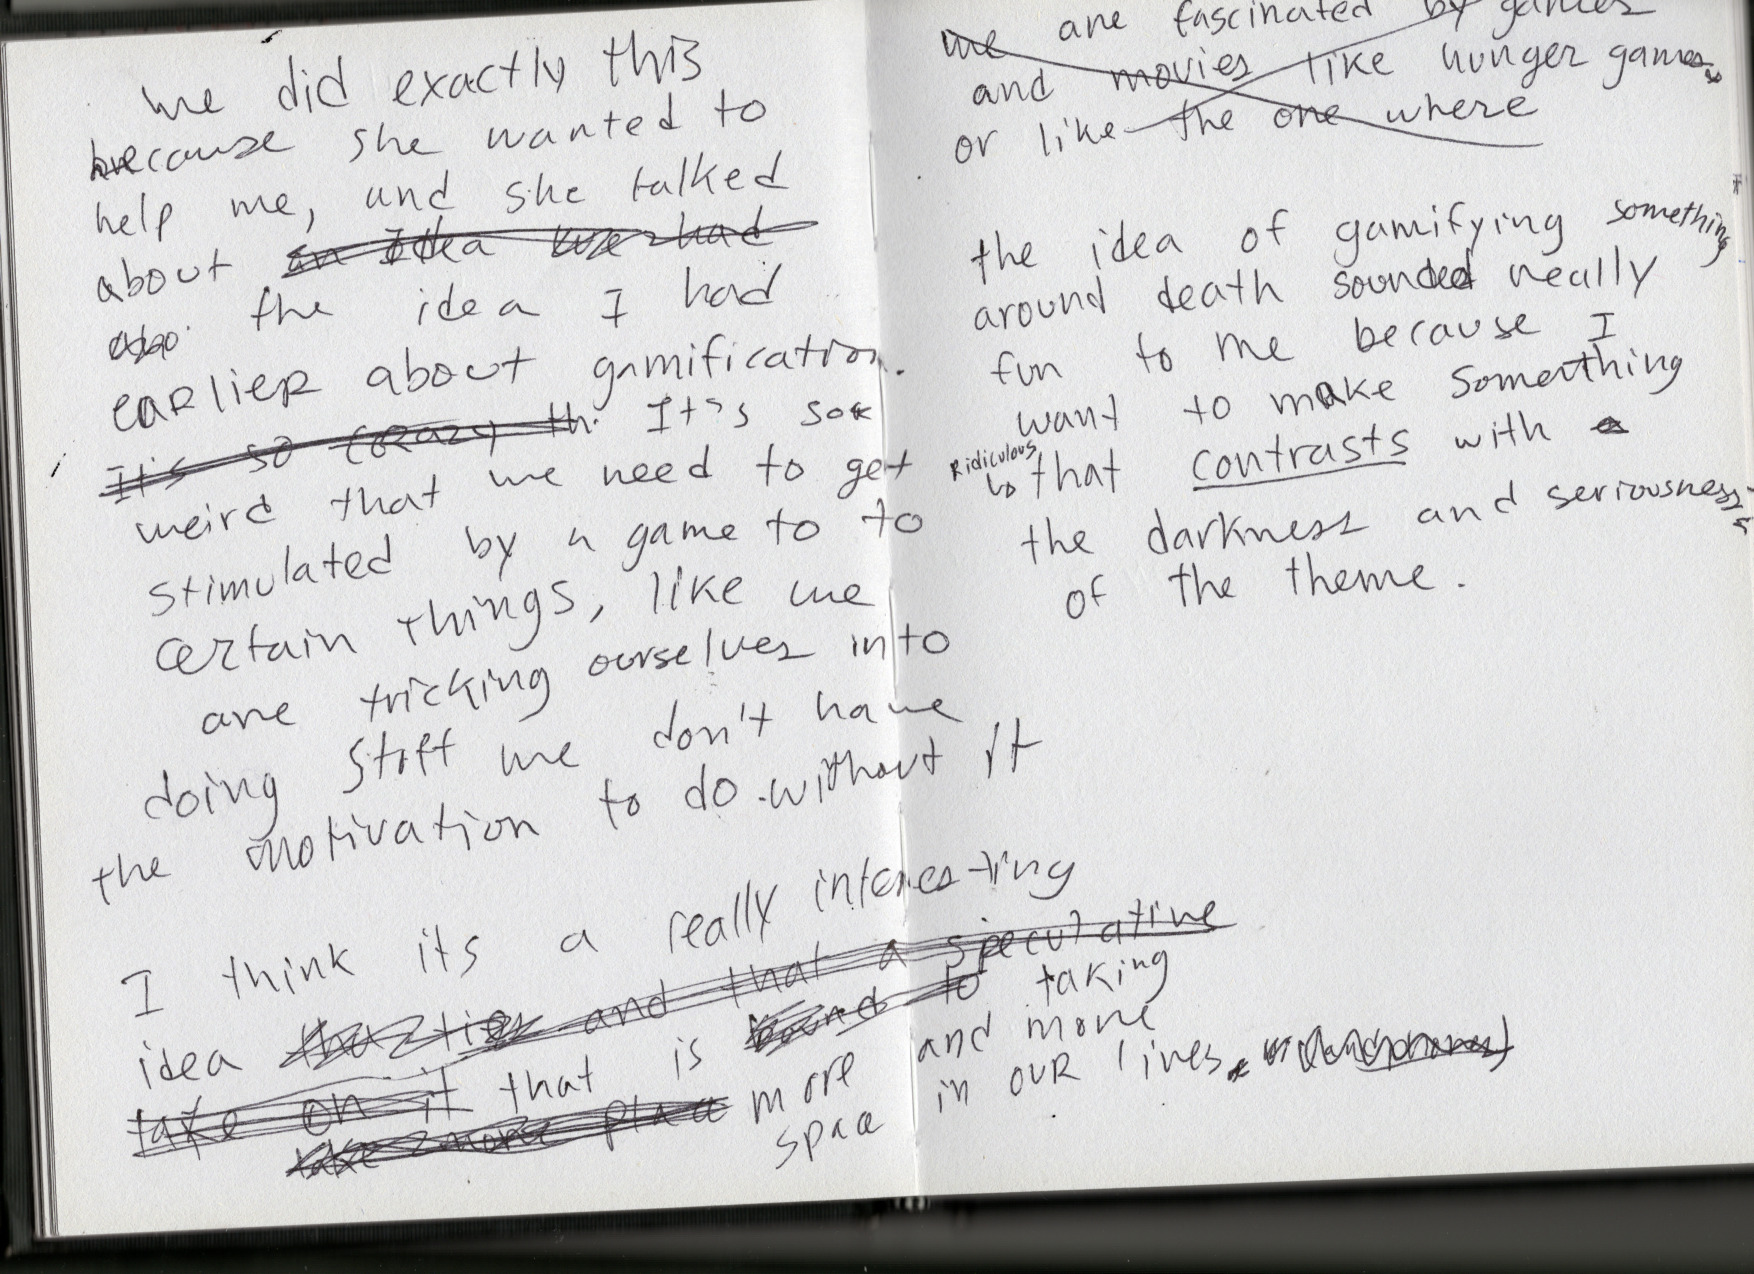 we did exactly this
because she wanted to
help me, and she talked
about an Idea we had
also the idea I had
earlier about gamification.
It's so crazy th. It's so
weird that we need to get
stimulated by a game to to
certain things, like we
are tricking ourselves into
doing stuff we don't have
the motivation to do without it
I think its a really interesting
idea and that a speculative
take on it that is bound to taking
take more place more and more
space in our lives.
we are fascinated by games
and movies like hunger games
or like the one where
the idea of gamifying something
around death sounded really
fun to me because I
want to make something
Ridiculous that contrasts with a
the darkness and seriousness
of the theme.